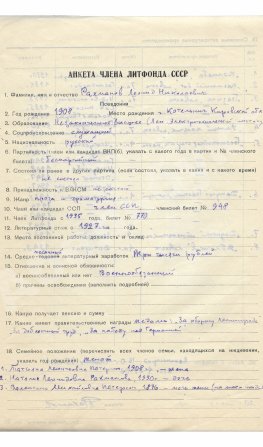 АНКЕТА ЧЛЕНА ЛИТФОНДА СССР
1. Фамилия, имя и отчество Рахманов Леонид Николаевич
Псевдоним
2. Год рождения 1908 Место рождения г. Котельнич Кировской обл.
3. Образование Незаконченное высшее (Лен. Электротехнический
4. Соцпроисхождение служащий
5. Национальность русский
6. Партийность (член или кандидат ВКП(б), указать с какого года в партии и № членского
билета) Беспартийный
7. Состоял ли ранее в других партиях (если состоял, указать в каких и с какого времени)
Не
8. Принадлежность к ВЛКСМ не состоял
9. Жанр проза и драматургия
10. Член или кандидат ССП член ССП членский билет № 948
11. Член Литфонда с 1935 года, билет №
12. Литературный стаж с 1927 года
13. Место постоянной работы, должность и оклад
14. Средне-годовой литературный заработок тысяч рублей
15. Отношение к воинской обязанности:
а) военнообязанный или нет Военнообязанный
б) причины освобождения (заполнить подробнее)
16. Какую получает пенсию и сумму
17. Какие имеет правительственные награды медали: „За оборону Ленинграда",
„За доблестный труд", „За победу над Германией"
18. Семейное положение (перечислить всех членов семьи, находящихся на иждивении,
указать год рождения) женат
1. Татьяна Леонтьевна Петерсон, 1908 г. – жена
2. Наталья Леонидовна Рахманова, 1930 – дочь
3. 1876 – мать жены